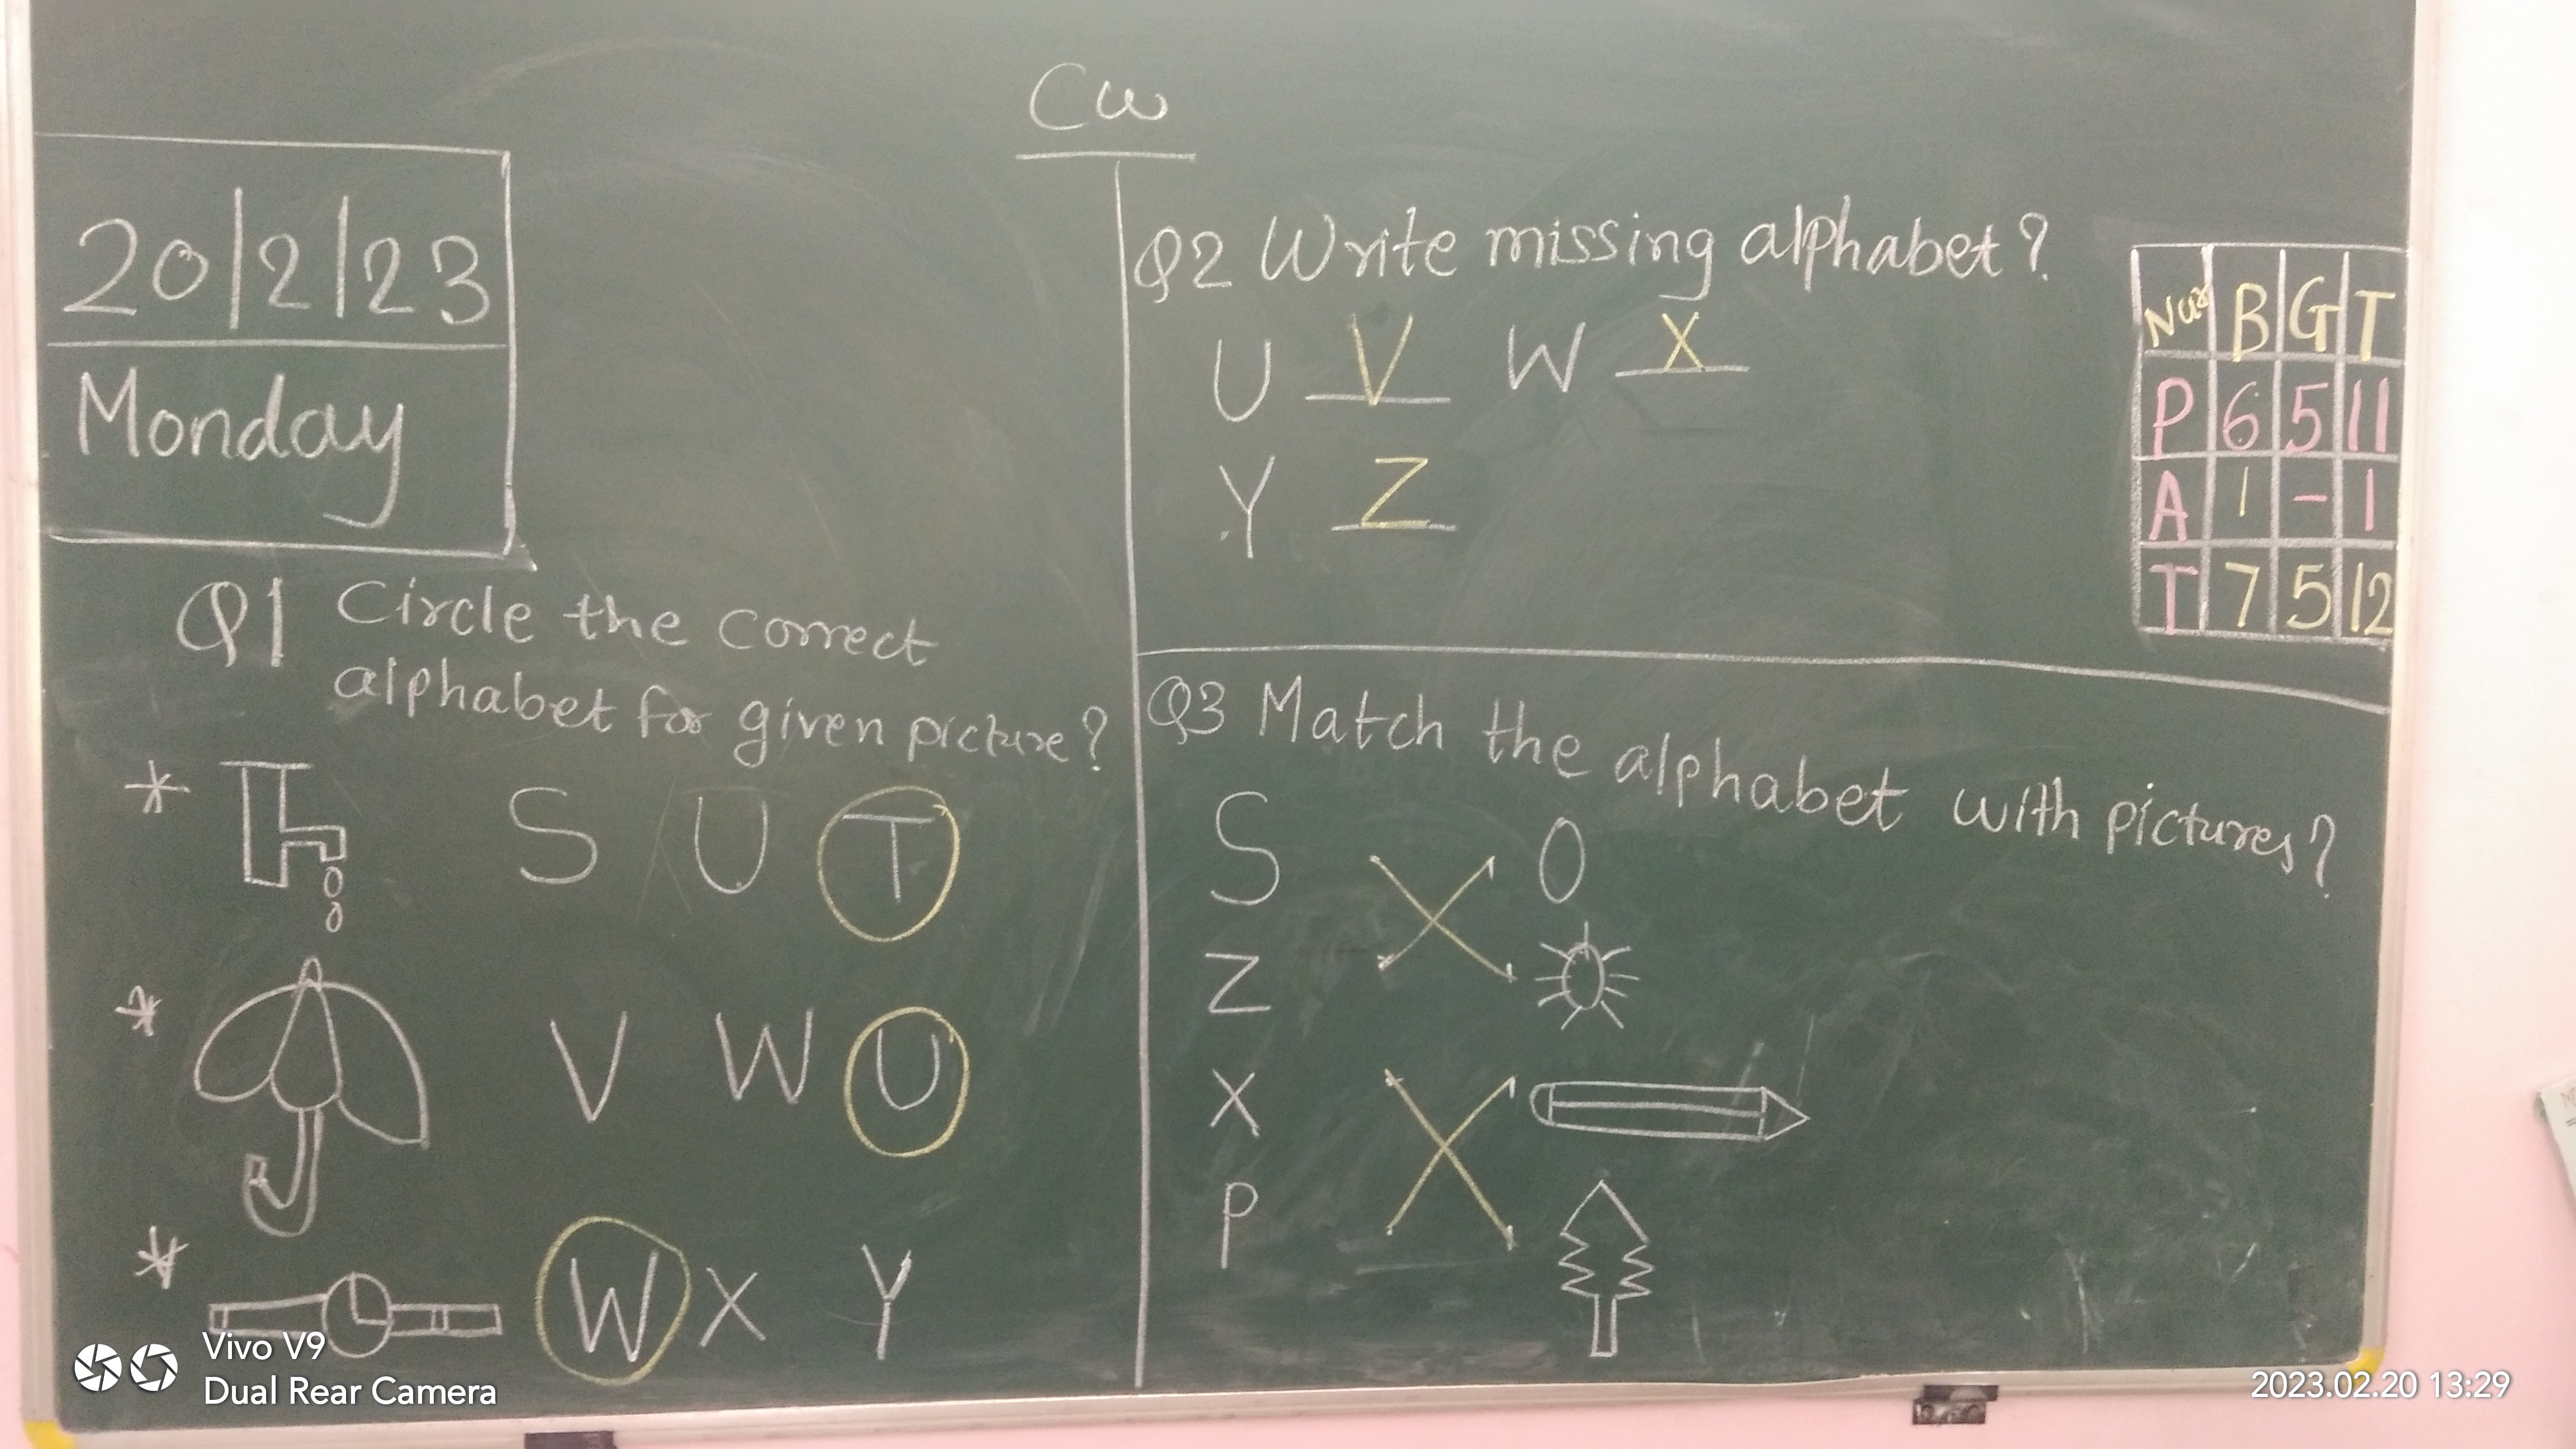 Cw
20/2/23
Monday
Q1 Circle the correct
alphabet for given picture?
* S U T
* V W U
* W X Y
Q2 Write missing alphabet?
U V W X
Y Z
Nur B G T
P 6 5 11
A 1 - 1
T 7 5 12
Q3 Match the alphabet with pictures?
S 0
Z
X
P
Vivo V9
Dual Rear Camera
2023.02.20 13:29